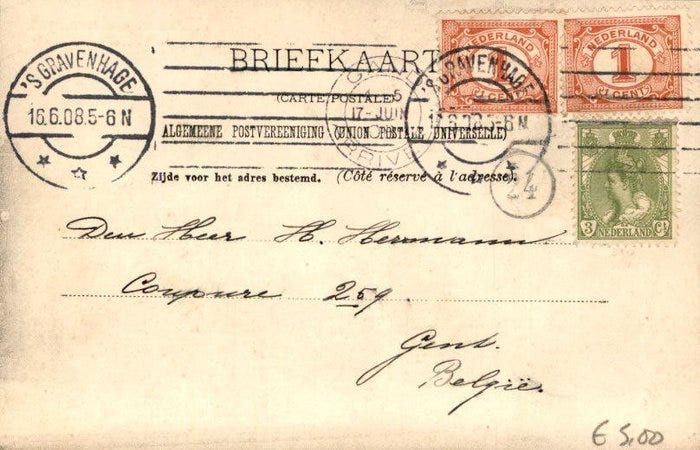 NEDERLAND
1 CENT
NEDERLAND
1
CENT
BRIEFKAART
'S GRAVENHAGE
16.6.08.5-6 N
'S GRAVENHAGE
5-6 N
(CARTE POSTALE)
17-JUIN
ALGEMEENE POSTVEREENIGING (UNION POSTALE UNIVERSELLE)
Zijde voor het adres bestemd. (Côté réservé à l'adresse).
3 Ct
NEDERLAND
Den Heer H. Herrmann
Coupure 259.
Gent.
België.
€ 5,00